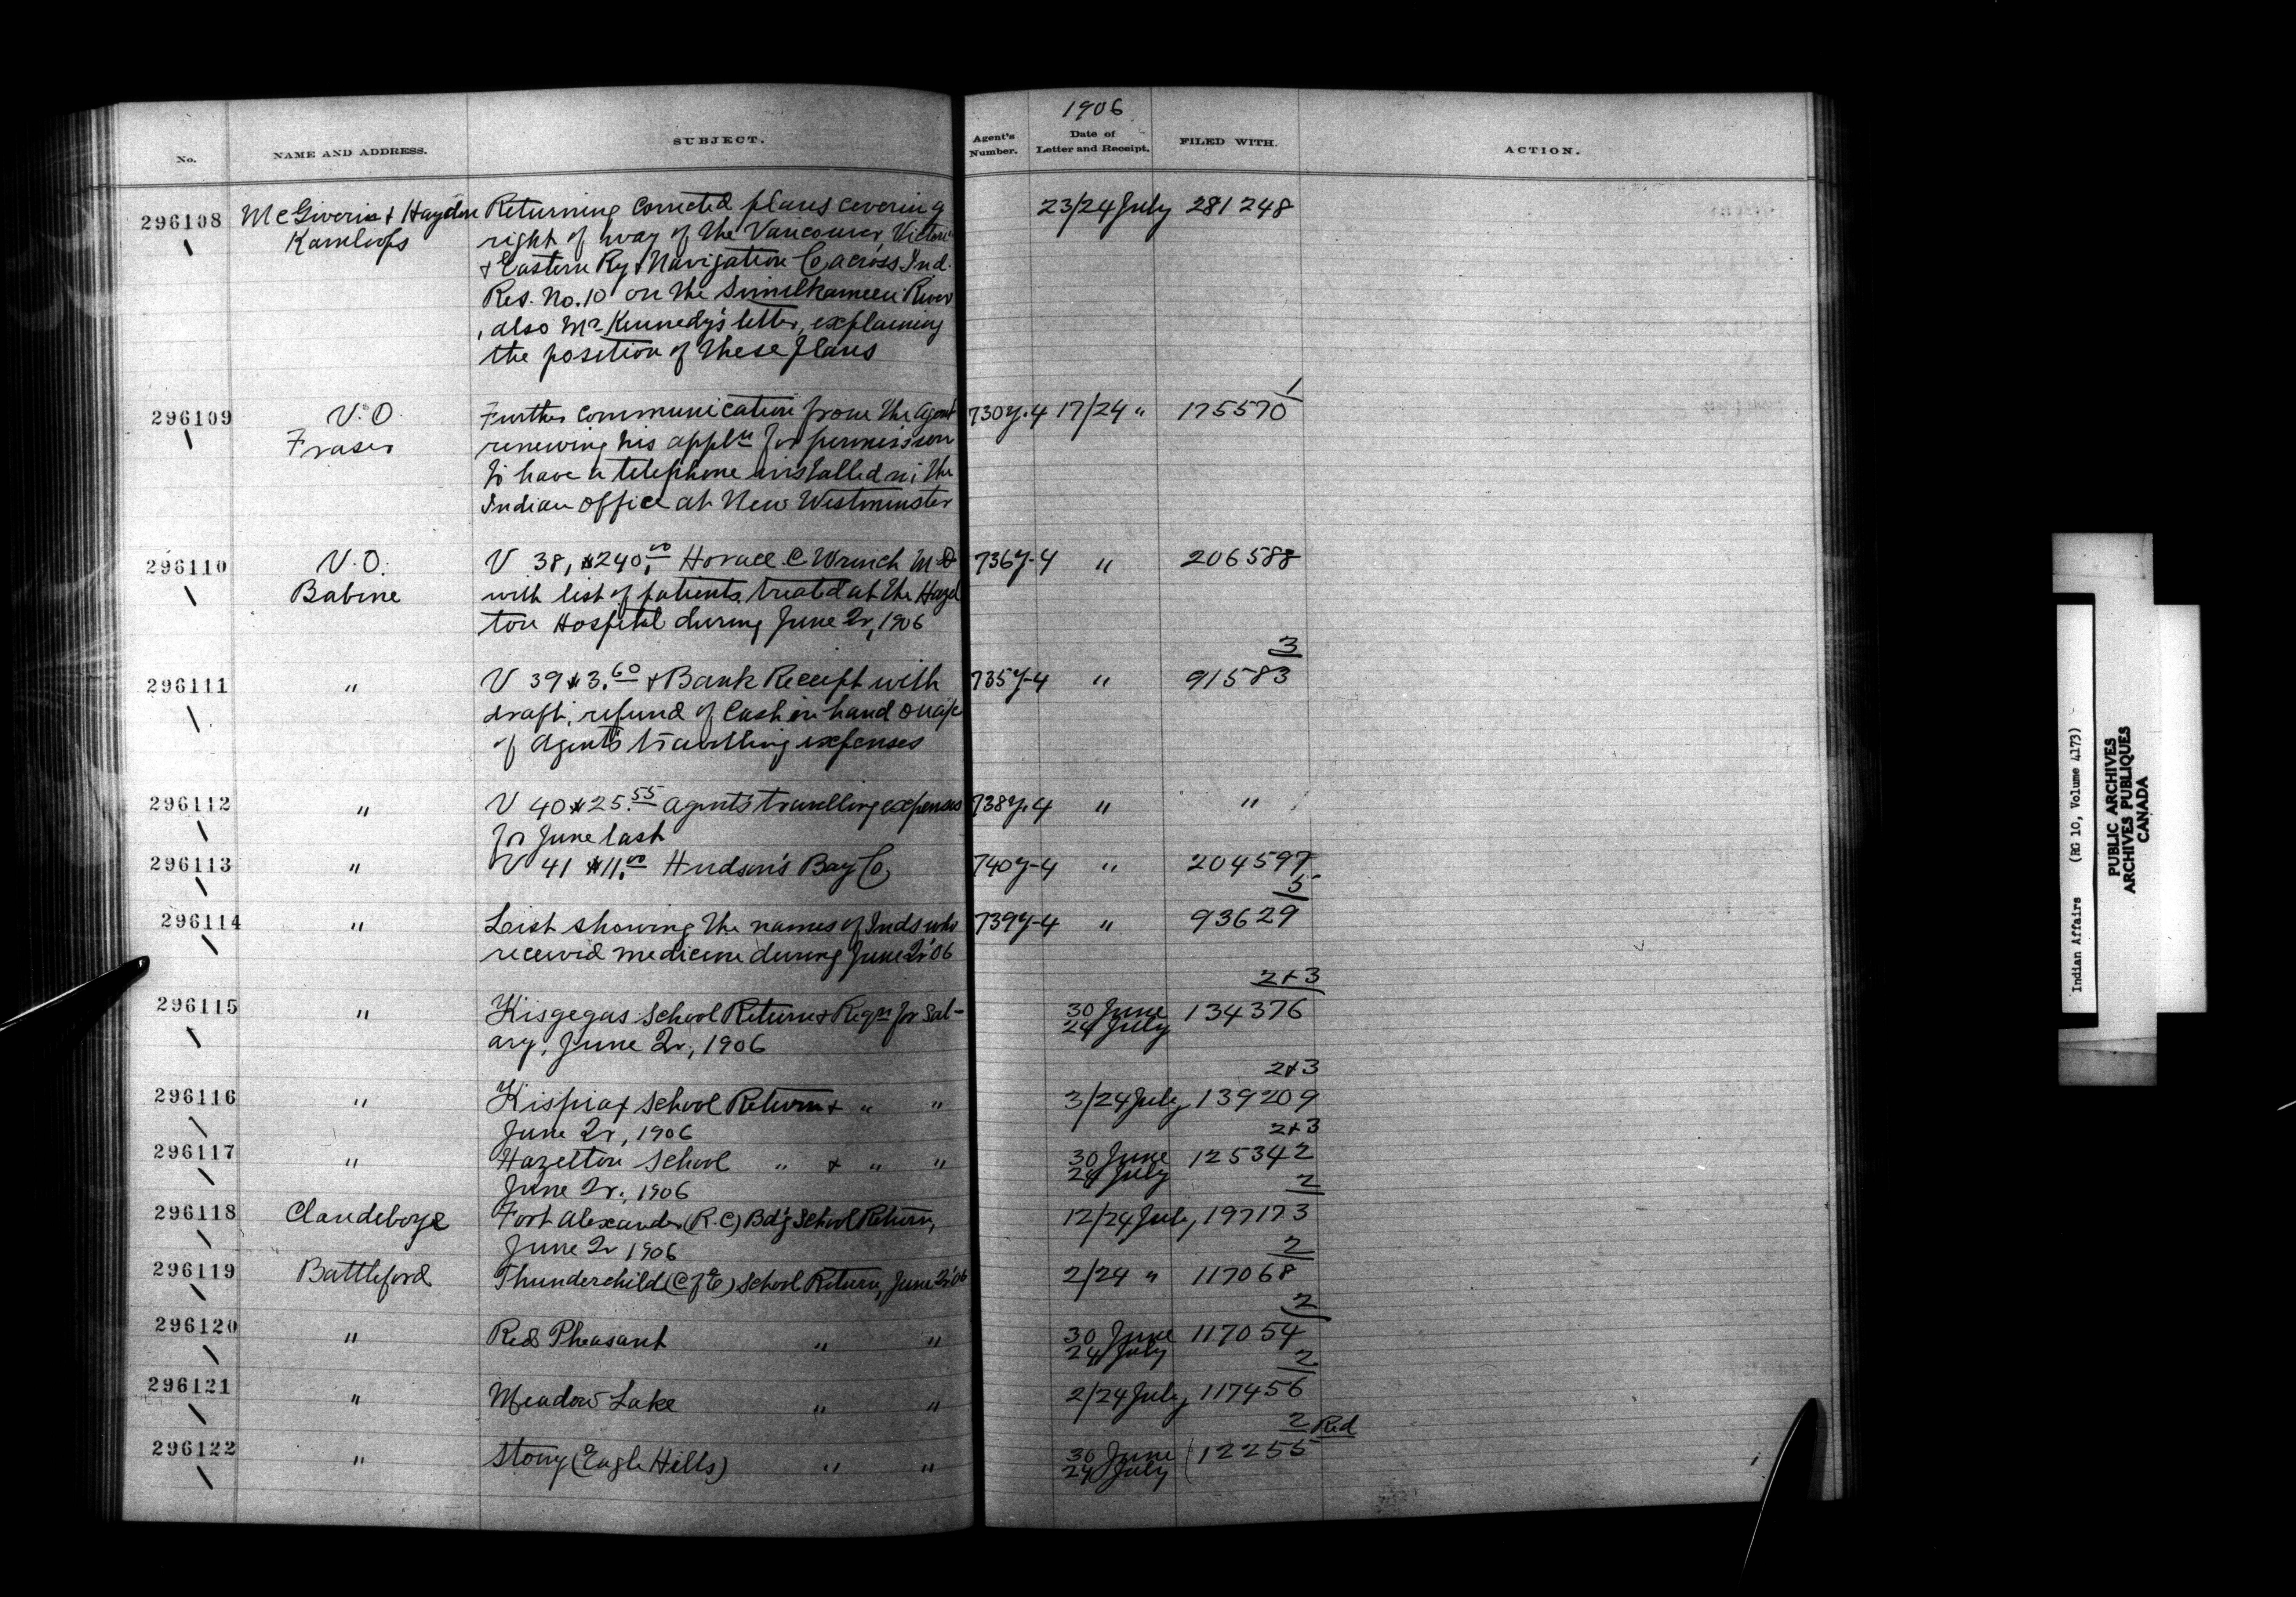 1906
No. NAME AND ADDRESS. SUBJECT. Agent's Number. Date of Letter and Receipt. FILED WITH. ACTION.
296108 McGiverin & Haydon Returning corrected plans covering 23/24 July 281248
Kamloops right of way of the Vancouver, Victoria
& Eastern Ry & Navigation Co, across Ind.
Res. No. 10 on the Similkameen River
, also Mr Kennedy's letter, explaining
the position of these plans
296109 V.O. Further communication from the Agent 730y.4 17/24 " 175570 1
Fraser renewing his appln for permission
to have a telephone installed in the
Indian Office at New Westminster
296110 V.O. V 38, $240.00 Horace C. Wrinch M.D 736y-4 " 206588
Babine with list of patients treated at the Hazel
ton Hospital during June Qr, 1906
296111 " V 39 $3.60 & Bank Receipt with 735y-4 " 91583 3
draft, refund of Cash in hand on a/c
of Agent's travelling expenses
296112 " V 40 $25.55 Agent's travelling expenses 738y.4 " "
for June last
296113 " V 41 $11.00 Hudson's Bay Co, 740y-4 " 204597
296114 " List showing the names of Inds who 739y-4 " 93629 5
received medicine during June Qr '06
296115 " Kisgegas School Return & Reqn for Sal- 30 June 24 July 134376 2+3
ary, June Qr, 1906
296116 " Kispiax School Return & " " 3/24 July 139209 2+3
June Qr, 1906
296117 " Hazelton School " & " " 30 June 24 July 125342 2+3
June Qr, 1906
296118 Clandeboye Fort Alexander (R.C) Bd'g School Return, 12/24 July, 197173 2
June Qr 1906
296119 Battleford Thunderchild (C of E) School Return, June Qr '06 2/24 " 117068 2
296120 " Red Pheasant " " 30 June 24 July 117054 2
296121 " Meadow Lake " " 2/24 July 117456 2
296122 " Stony (Eagle Hills) " " 30 June 24 July 12255 2 Red
Indian Affairs (RG 10, Volume 4173)
PUBLIC ARCHIVES
ARCHIVES PUBLIQUES
CANADA